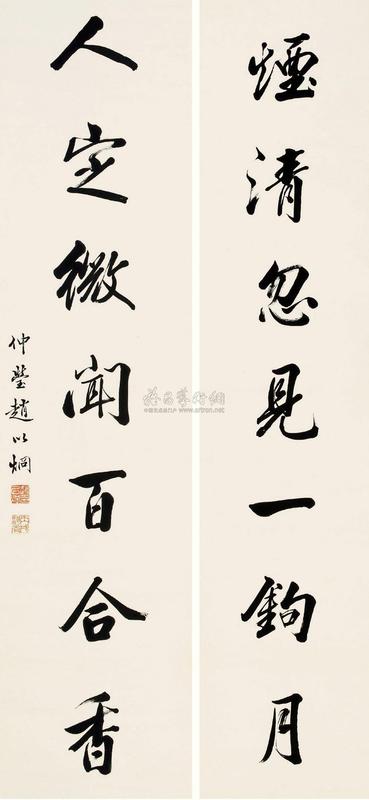 煙清忽見一鉤月
人定微聞百合香
仲瑩趙以烱
雅昌藝術網
www.artron.net